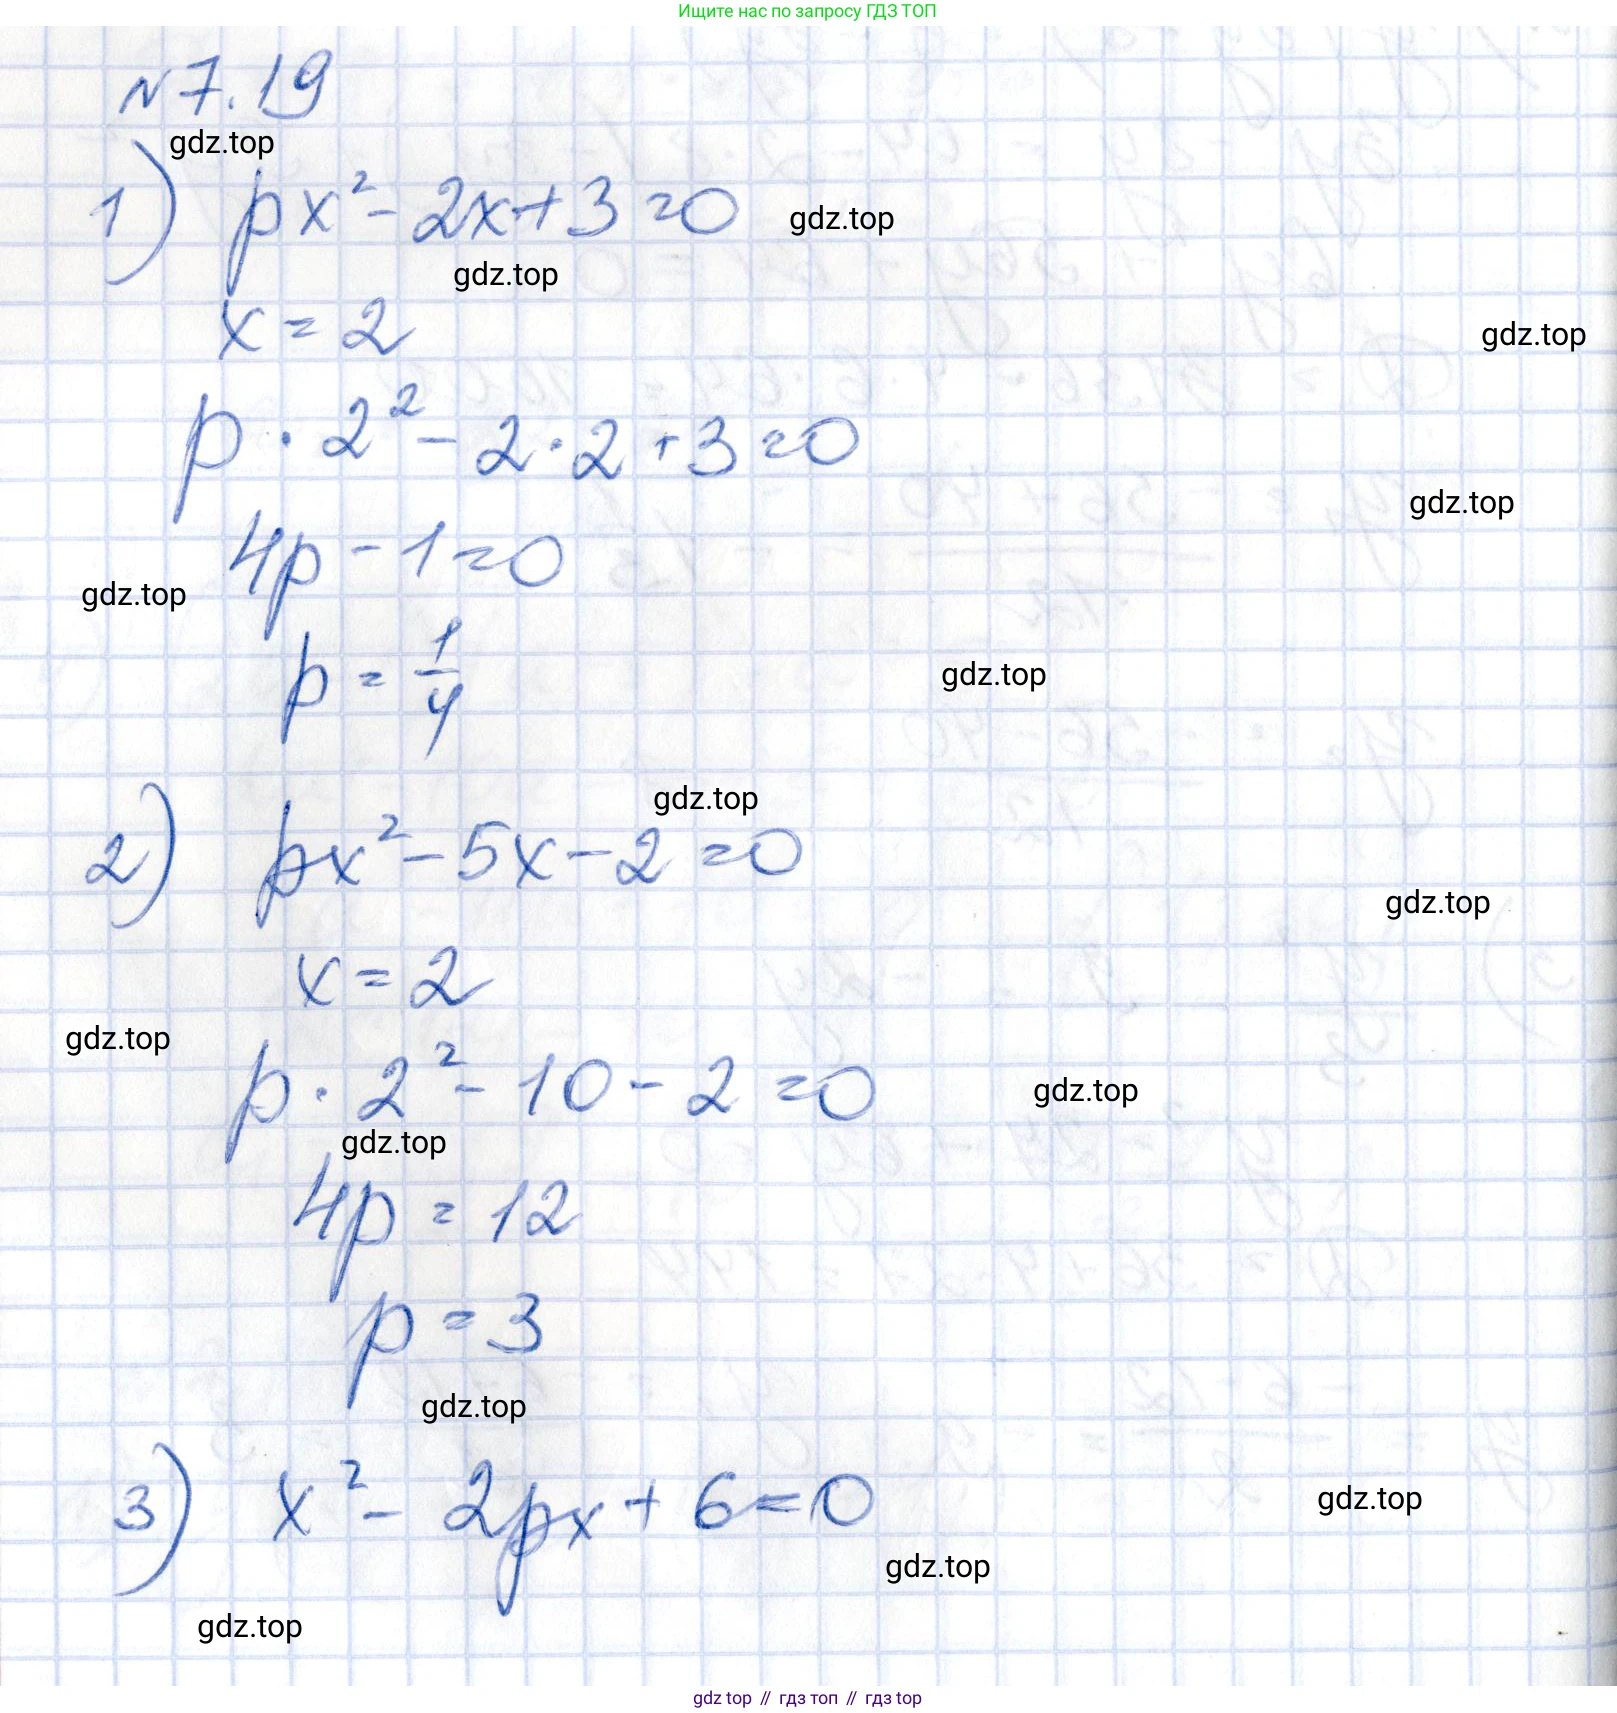 Ищите нас по запросу ГДЗ ТОП
N 7.19
gdz.top
1) px² - 2x + 3 = 0
gdz.top
gdz.top
x = 2
gdz.top
p · 2² - 2 · 2 + 3 = 0
gdz.top
4p - 1 = 0
gdz.top
p = 1/4
gdz.top
gdz.top
2) px² - 5x - 2 = 0
gdz.top
x = 2
gdz.top
p · 2² - 10 - 2 = 0
gdz.top
gdz.top
4p = 12
p = 3
gdz.top
3) x² - 2px + 6 = 0
gdz.top
gdz.top
gdz.top
gdz top // гдз топ // гдз top